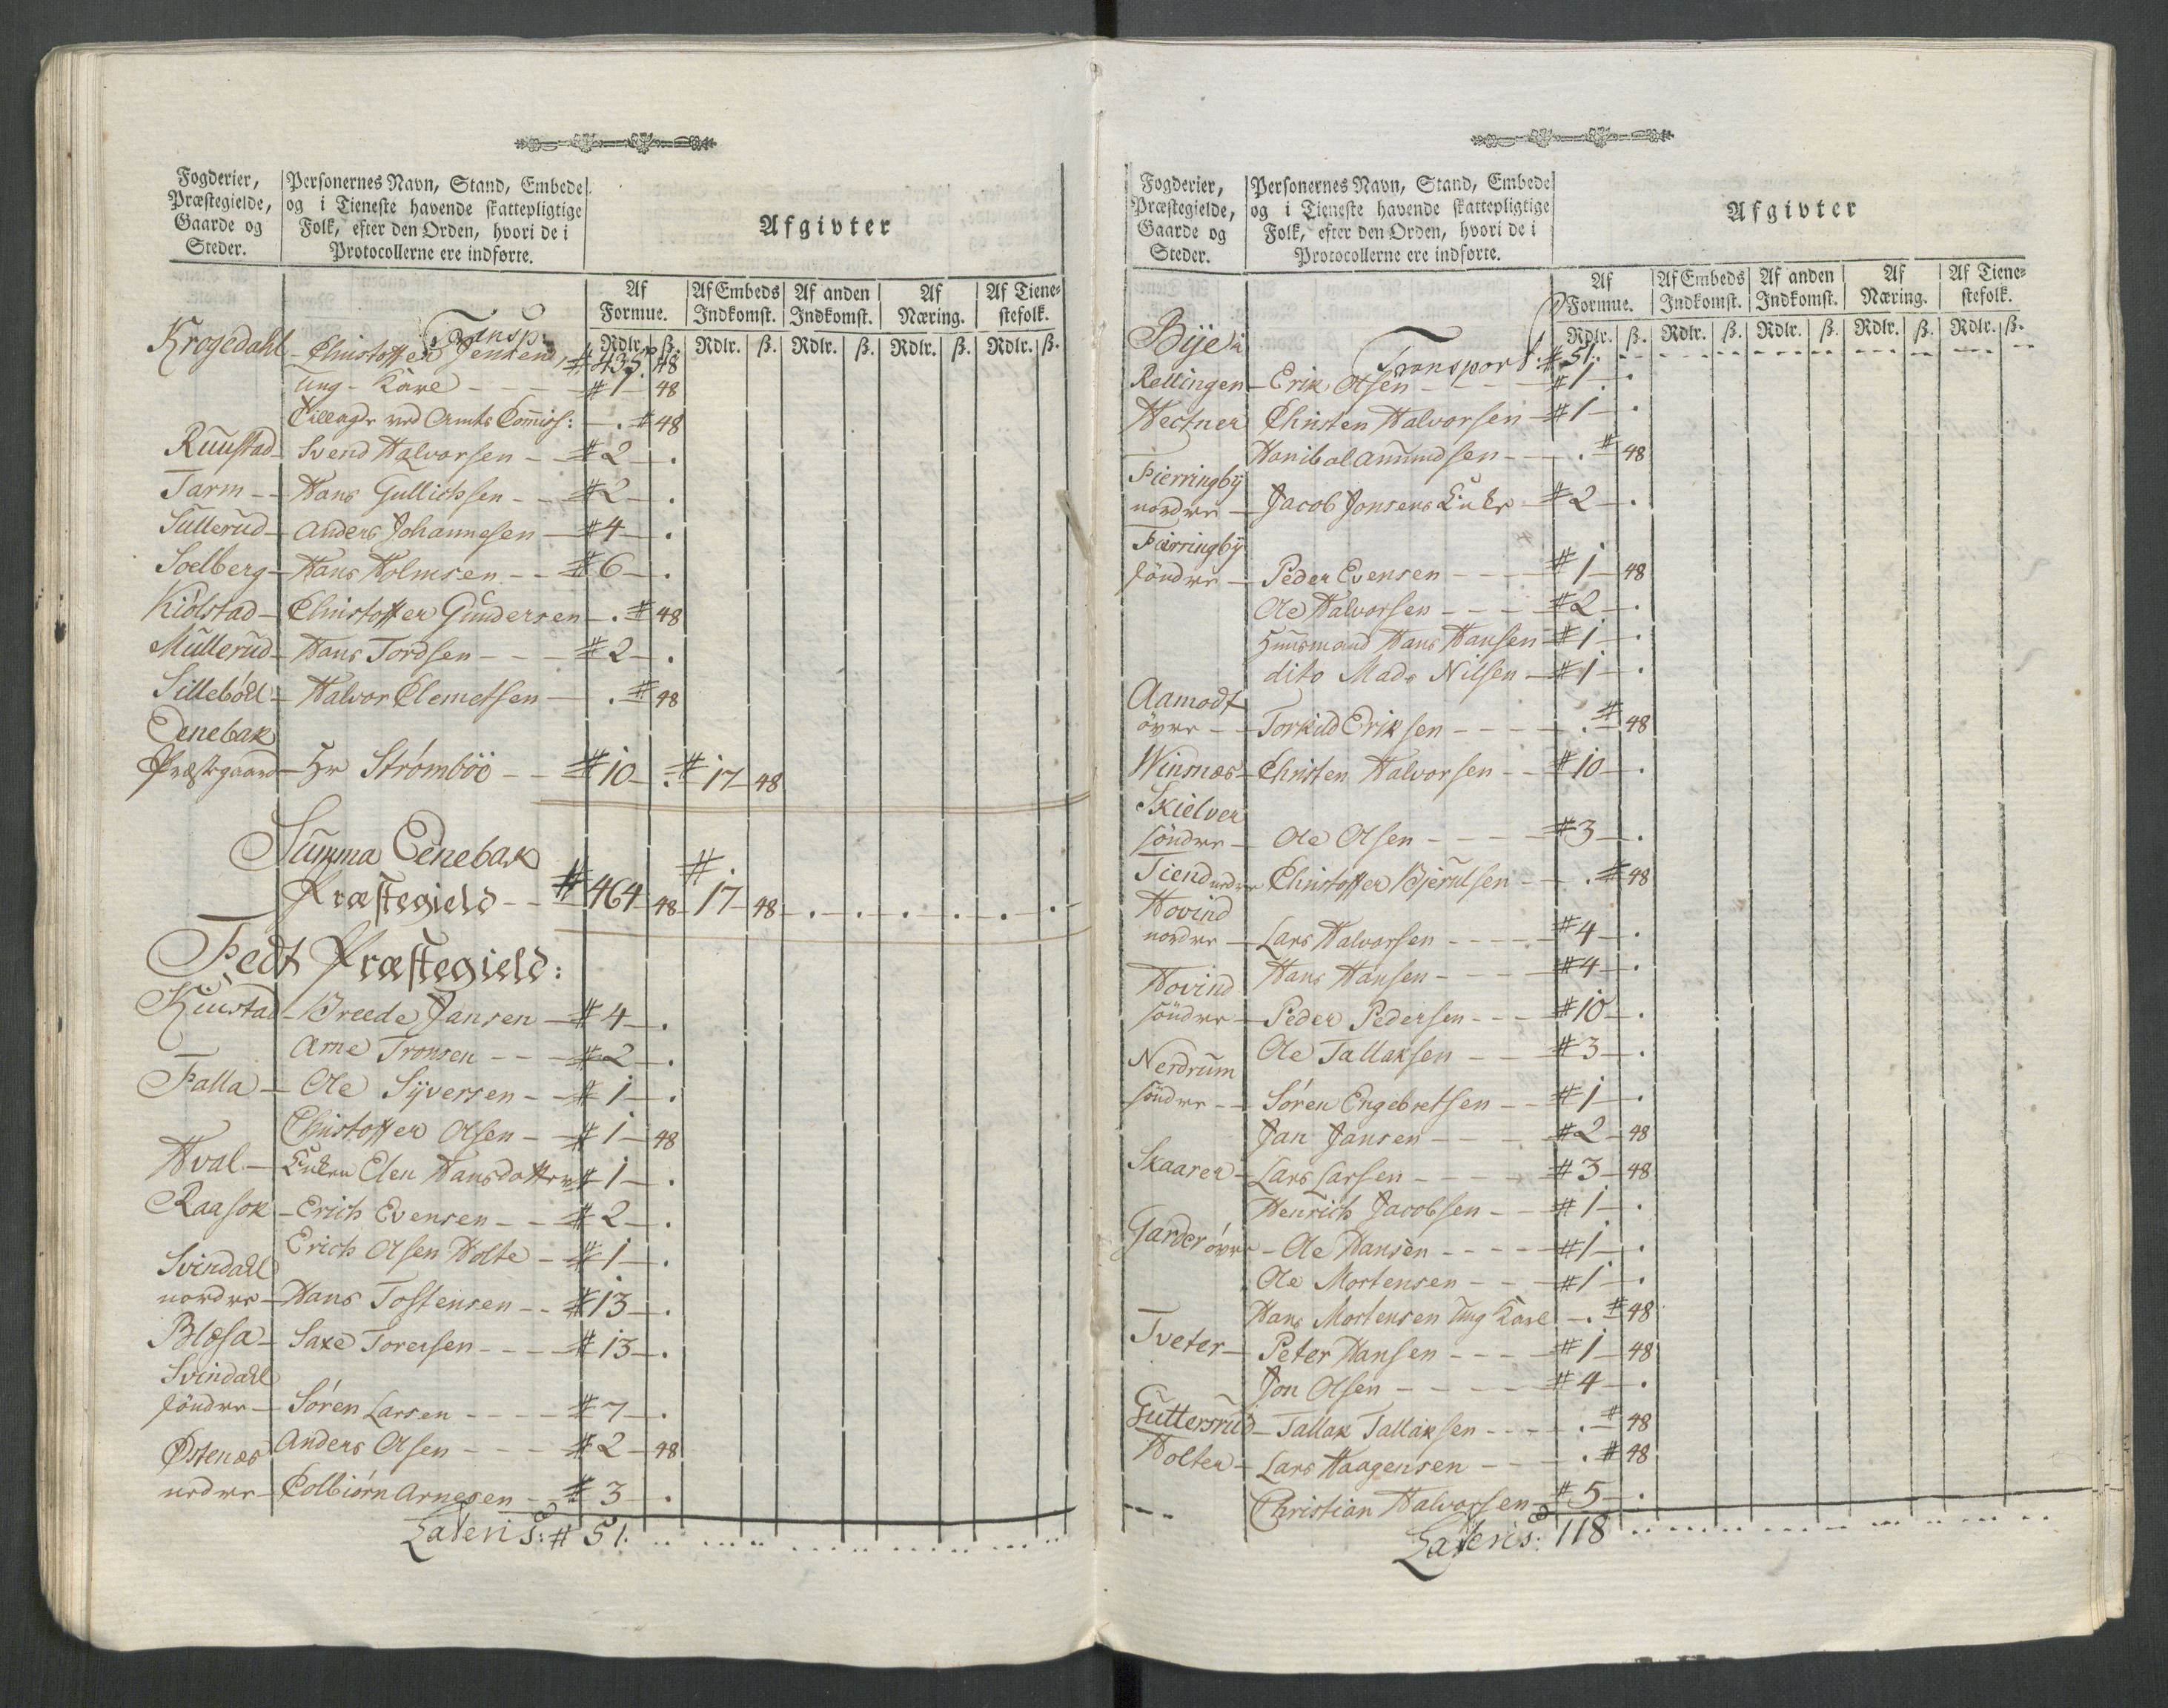 Fogderier,
Præstegielde,
Gaarde og
Steder.
Personernes Navn, Stand, Embede
og i Tieneste havende skattepligtige
Folk, efter den Orden, hvori de i
Protocollerne ere indførte.
Afgivter
Af Formue. Af Embeds Indkomst. Af anden Indkomst. Af Næring. Af Tiene=stefolk.
Rdlr. ß. Rdlr. ß. Rdlr. ß. Rdlr. ß. Rdlr. ß.
Transp: # 435. 48
Krogedahl - Christoffer Jensens
Ung - Karl - - - # 1 - 48
Tillagde ved Amts Comiss: - . # 48
Ruustad - Svend Halvorsen - - # 2 - .
Tarm - - Hans Gullichsen - - # 2 - .
Sullerud - Anders Johannesen - # 4 - .
Soelberg - Hans Holmsen - - # 6 - .
Kiölstad - Christoffer Gundersen - . # 48
Mullerud - Hans Tordsen - - - # 2 - .
Sillebóel - Halvor Clemetsen - . # 48
Eenebak
Præstegaard - Hr Strömböo - - # 10 - . # 17 - 48
Summa Eenebak
Præstegield - - # 464 - 48 # 17 - 48 - . - . - . - . - . - .
Fedt Præstegield:
Kiustad - Breede Jansen - # 4 - .
Arne Tronsen - - - # 2 - .
Falla - Ole Syversen - - # 1 - .
Christoffer Olsen - - # 1 - 48
Hval - Enken Elen Hansdatter # 1 - .
Raasok - Erich Evensen - - # 2 - .
Erich Olsen Holte - # 1 - .
Svindahl
nordre - Hans Tostensen - - # 13 - .
Blæsa - Saxe Torersen - - - # 13 - .
Svindahl
söndre - Sören Larsen - - - # 7 - .
Anders Olsen - - - # 2 - 48
Østenæs
nedre - Colbiörn Arnesen - # 3 - .
Lateris: # 51.
Fogderier,
Præstegielde,
Gaarde og
Steder.
Personernes Navn, Stand, Embede
og i Tieneste havende skattepligtige
Folk, efter den Orden, hvori de i
Protocollerne ere indførte.
Afgivter
Af Formue. Af Embeds Indkomst. Af anden Indkomst. Af Næring. Af Tiene=stefolk.
Rdlr. ß. Rdlr. ß. Rdlr. ß. Rdlr. ß. Rdlr. ß.
Transport. # 51.
Rellingen - Erik Olsen - - - # 1 - .
Hectner Christen Halvorsen - # 1 - .
Hanibal Amundsen - - . # 48
Fierringby
nordre - Jacob Jonsens Enke - # 2 - .
Fierringby
söndre - Peder Evensen - - - # 1 - 48
Ole Halvorsen - - - # 2 - .
Huusmand Hans Hansen # 1 - .
dito Mads Nilsen - # 1 - .
Aamodt
övre - - Torkild Eriksen - - - . # 48
Winsnæs - Christen Halvorsen - - # 10 - .
Skielver
söndre - Ole Olsen - - - # 3 - .
Tiend nedre Christoffer Bjerulsen - . # 48
Hovind
nordre - Lars Halvorsen - - - # 4 - .
Hans Hansen - - - # 4 - .
Hovind
söndre - Peder Pedersen - - - # 10 - .
Ole Tallaksen - - # 3 - .
Nerdrum
söndre - - Sören Engebretsen - - # 1 - .
Jan Jansen - - - # 2 - 48
Skaarer - Lars Larsen - - - # 3 - 48
Henrich Jacobsen - - # 1 - .
Garder övre - Ole Hansen - - - # 1 - .
Ole Mortensen - - # 1 - .
Hans Mortensen Ung Karl - . # 48
Tveter - Peter Hansen - - - # 1 - 48
Jon Olsen - - - # 4 - .
Guttersrud - Tallak Tallaksen - - - . # 48
Holter - Lars Haagensen - - . # 48
Christian Halvorsen - # 5 - .
Lateris: 118